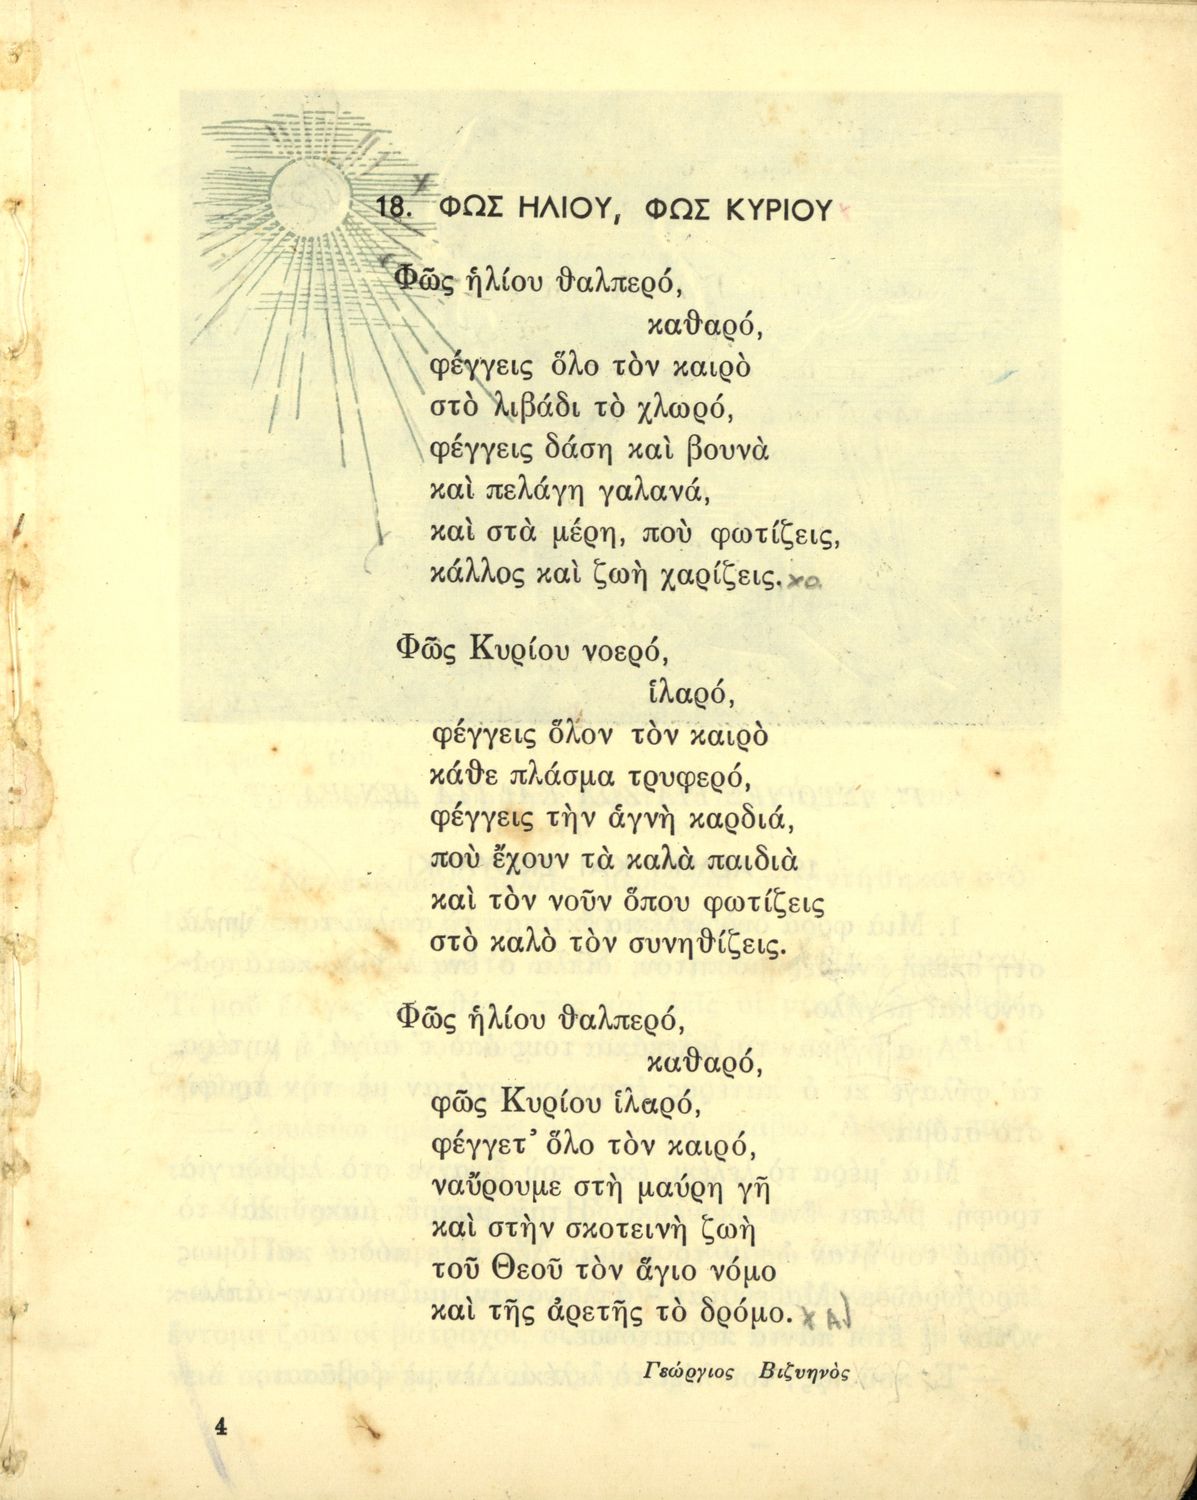 18. ΦΩΣ ΗΛΙΟΥ, ΦΩΣ ΚΥΡΙΟΥ
Φῶς ἡλίου θαλπερό,
καθαρό,
φέγγεις ὅλο τὸν καιρὸ
στὸ λιβάδι τὸ χλωρό,
φέγγεις δάση καὶ βουνὰ
καὶ πελάγη γαλανά,
καὶ στὰ μέρη, ποὺ φωτίζεις,
κάλλος καὶ ζωὴ χαρίζεις.
Φῶς Κυρίου νοερό,
ἱλαρό,
φέγγεις ὅλον τὸν καιρὸ
κάθε πλάσμα τρυφερό,
φέγγεις τὴν ἁγνὴ καρδιά,
ποὺ ἔχουν τὰ καλὰ παιδιὰ
καὶ τὸν νοῦν ὅπου φωτίζεις
στὸ καλὸ τὸν συνηθίζεις.
Φῶς ἡλίου θαλπερό,
καθαρό,
φῶς Κυρίου ἱλαρό,
φέγγετ' ὅλο τὸν καιρό,
ναὔρουμε στὴ μαύρη γῆ
καὶ στὴν σκοτεινὴ ζωὴ
τοῦ Θεοῦ τὸν ἅγιο νόμο
καὶ τῆς ἀρετῆς τὸ δρόμο.
Γεώργιος Βιζυηνὸς
4